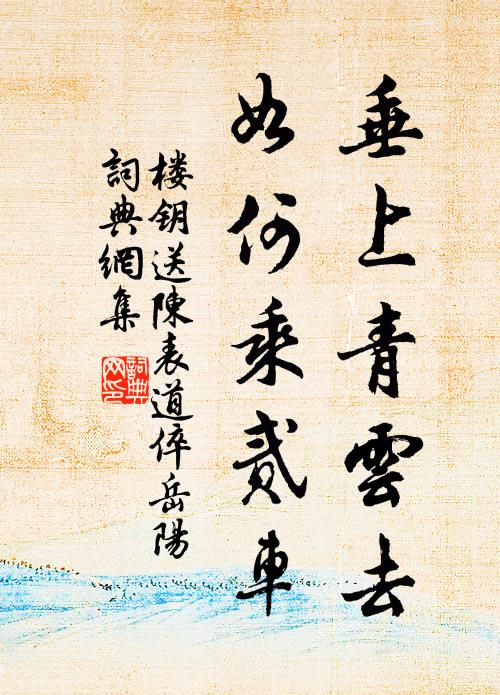 垂上青雲去
如何乘貳車
楼钥送陳表道倅岳陽
詞典網集
詞典網印